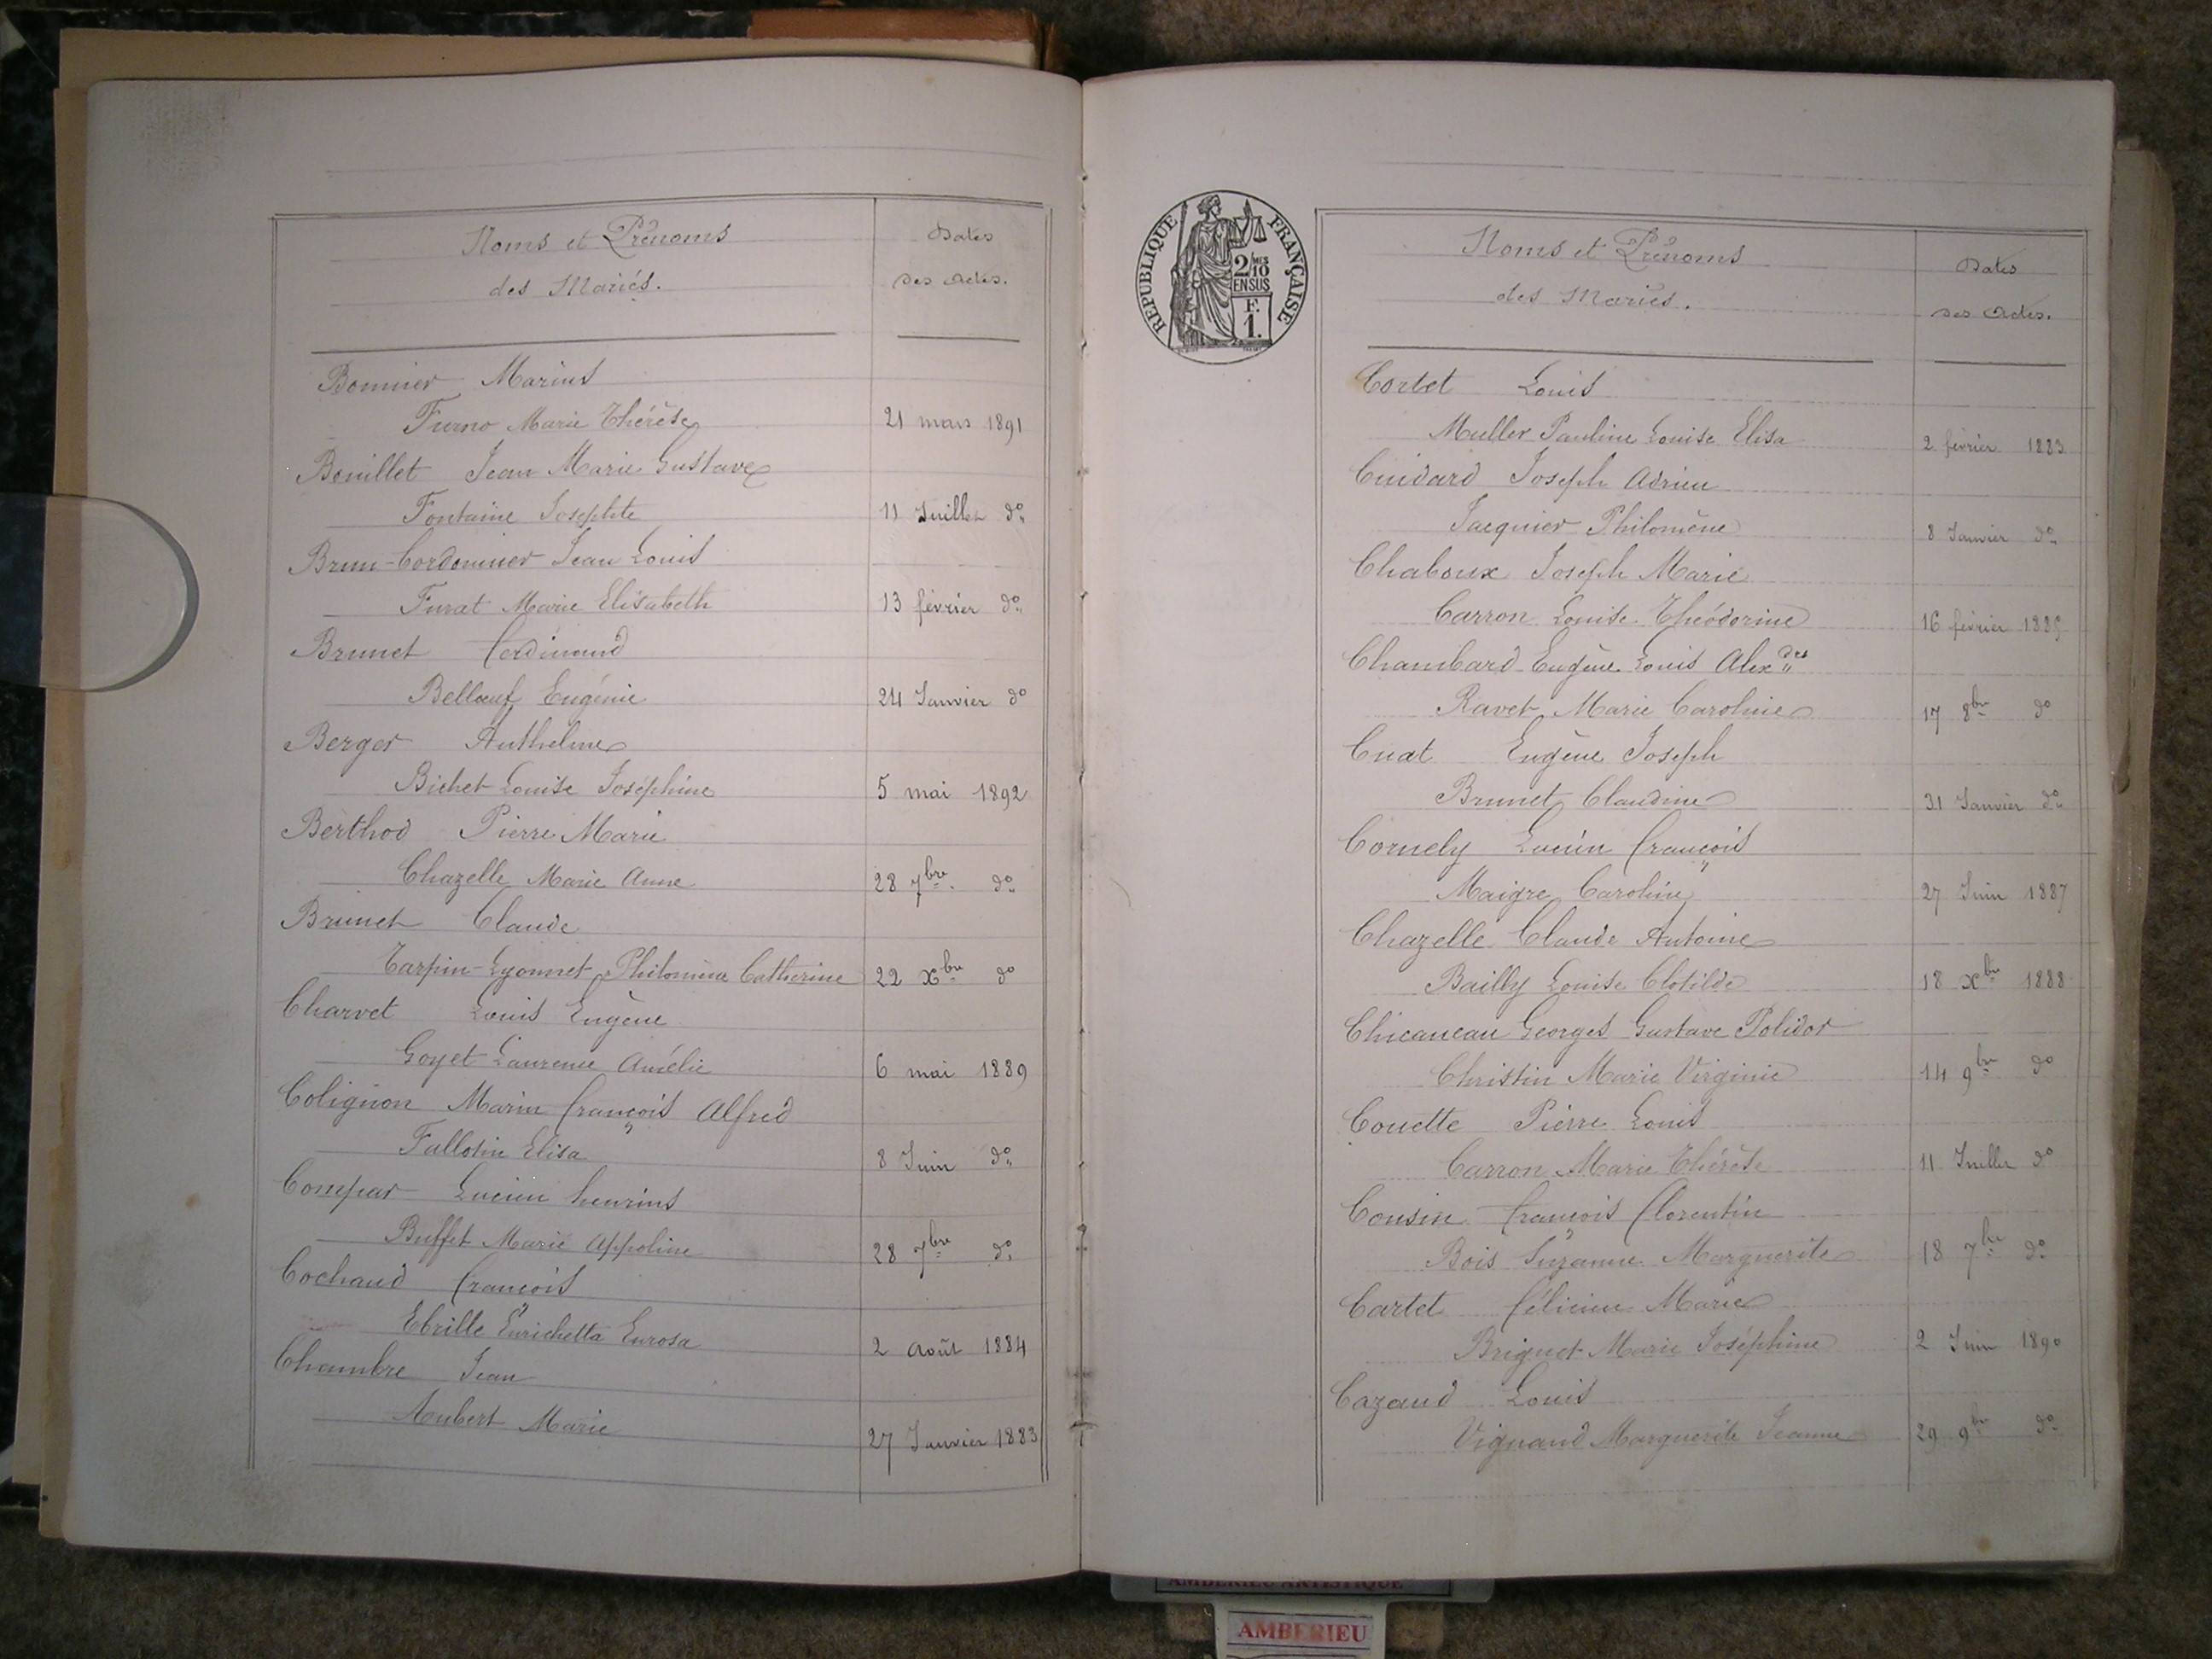 Noms et Prénoms
des Mariés.
Dates
des Actes.
Bonnier Marius
Furno Marie Thérèse 21 mars 1891
Bouillet Jean Marie Gustave
Fontaine Josephte 11 Juillet do
Brun-Cordonnier Jean Louis
Furat Marie Elisabeth 13 février do
Brunet Ferdinand
Bellœuf Eugénie 24 Janvier do
Berger Anthelme
Bichet Louise Joséphine 5 mai 1892
Berthod Pierre Marie
Chazelle Marie Anne 28 7bre do
Brunet Claude
Tarpin-Lyonnet Philomène Catherine 22 Xbre do
Charvet Louis Eugène
Goyet Laurence Amélie 6 mai 1889
Colignon Marin François Alfred
Fallotin Elisa 8 Juin do
Compar Lucien henrius
Buffet Marie Appoline 28 7bre do
Cochaud François
Ebrille Enrichetta Eurosa 2 Août 1884
Chambre Jean
Aubert Marie 27 Janvier 1883
REPUBLIQUE FRANÇAISE
2/10 MES
EN SUS
F.
1.
Noms et Prénoms
des Mariés.
Dates
des Actes.
Cortet Louis
Muller Pauline Louise Elisa 2 février 1883
Cuidard Joseph Adrien
Jacquier Philomène 8 Janvier do
Chaboux Joseph Marie
Carron Louise Théodorine 16 février
Chambard Eugène Louis Alexdre
Ravet Marie Caroline 17 8bre do
Cuat Eugène Joseph
Brunet Claudine 31 Janvier do
Cornely Lucien François
Maigre Caroline 27 Juin 1887
Chazelle Claude Antoine
Bailly Louise Clotilde 18 Xbre 1888
Chicaneau Georges Gustave Polidor
Christin Marie Virginie 14 9bre do
Couette Pierre Louis
Carron Marie Thérèse 11 Juillet do
Cousin François Florentin
Bois Suzanne Marguerite 18 7bre do
Cartet Félicien Marie
Briguet Marie Joséphine 2 Juin 1890
Cazaud Louis
Vignaud Marguerite Jeanne 29 9bre do
AMBERIEU ARTISTIQUE
AMBERIEU